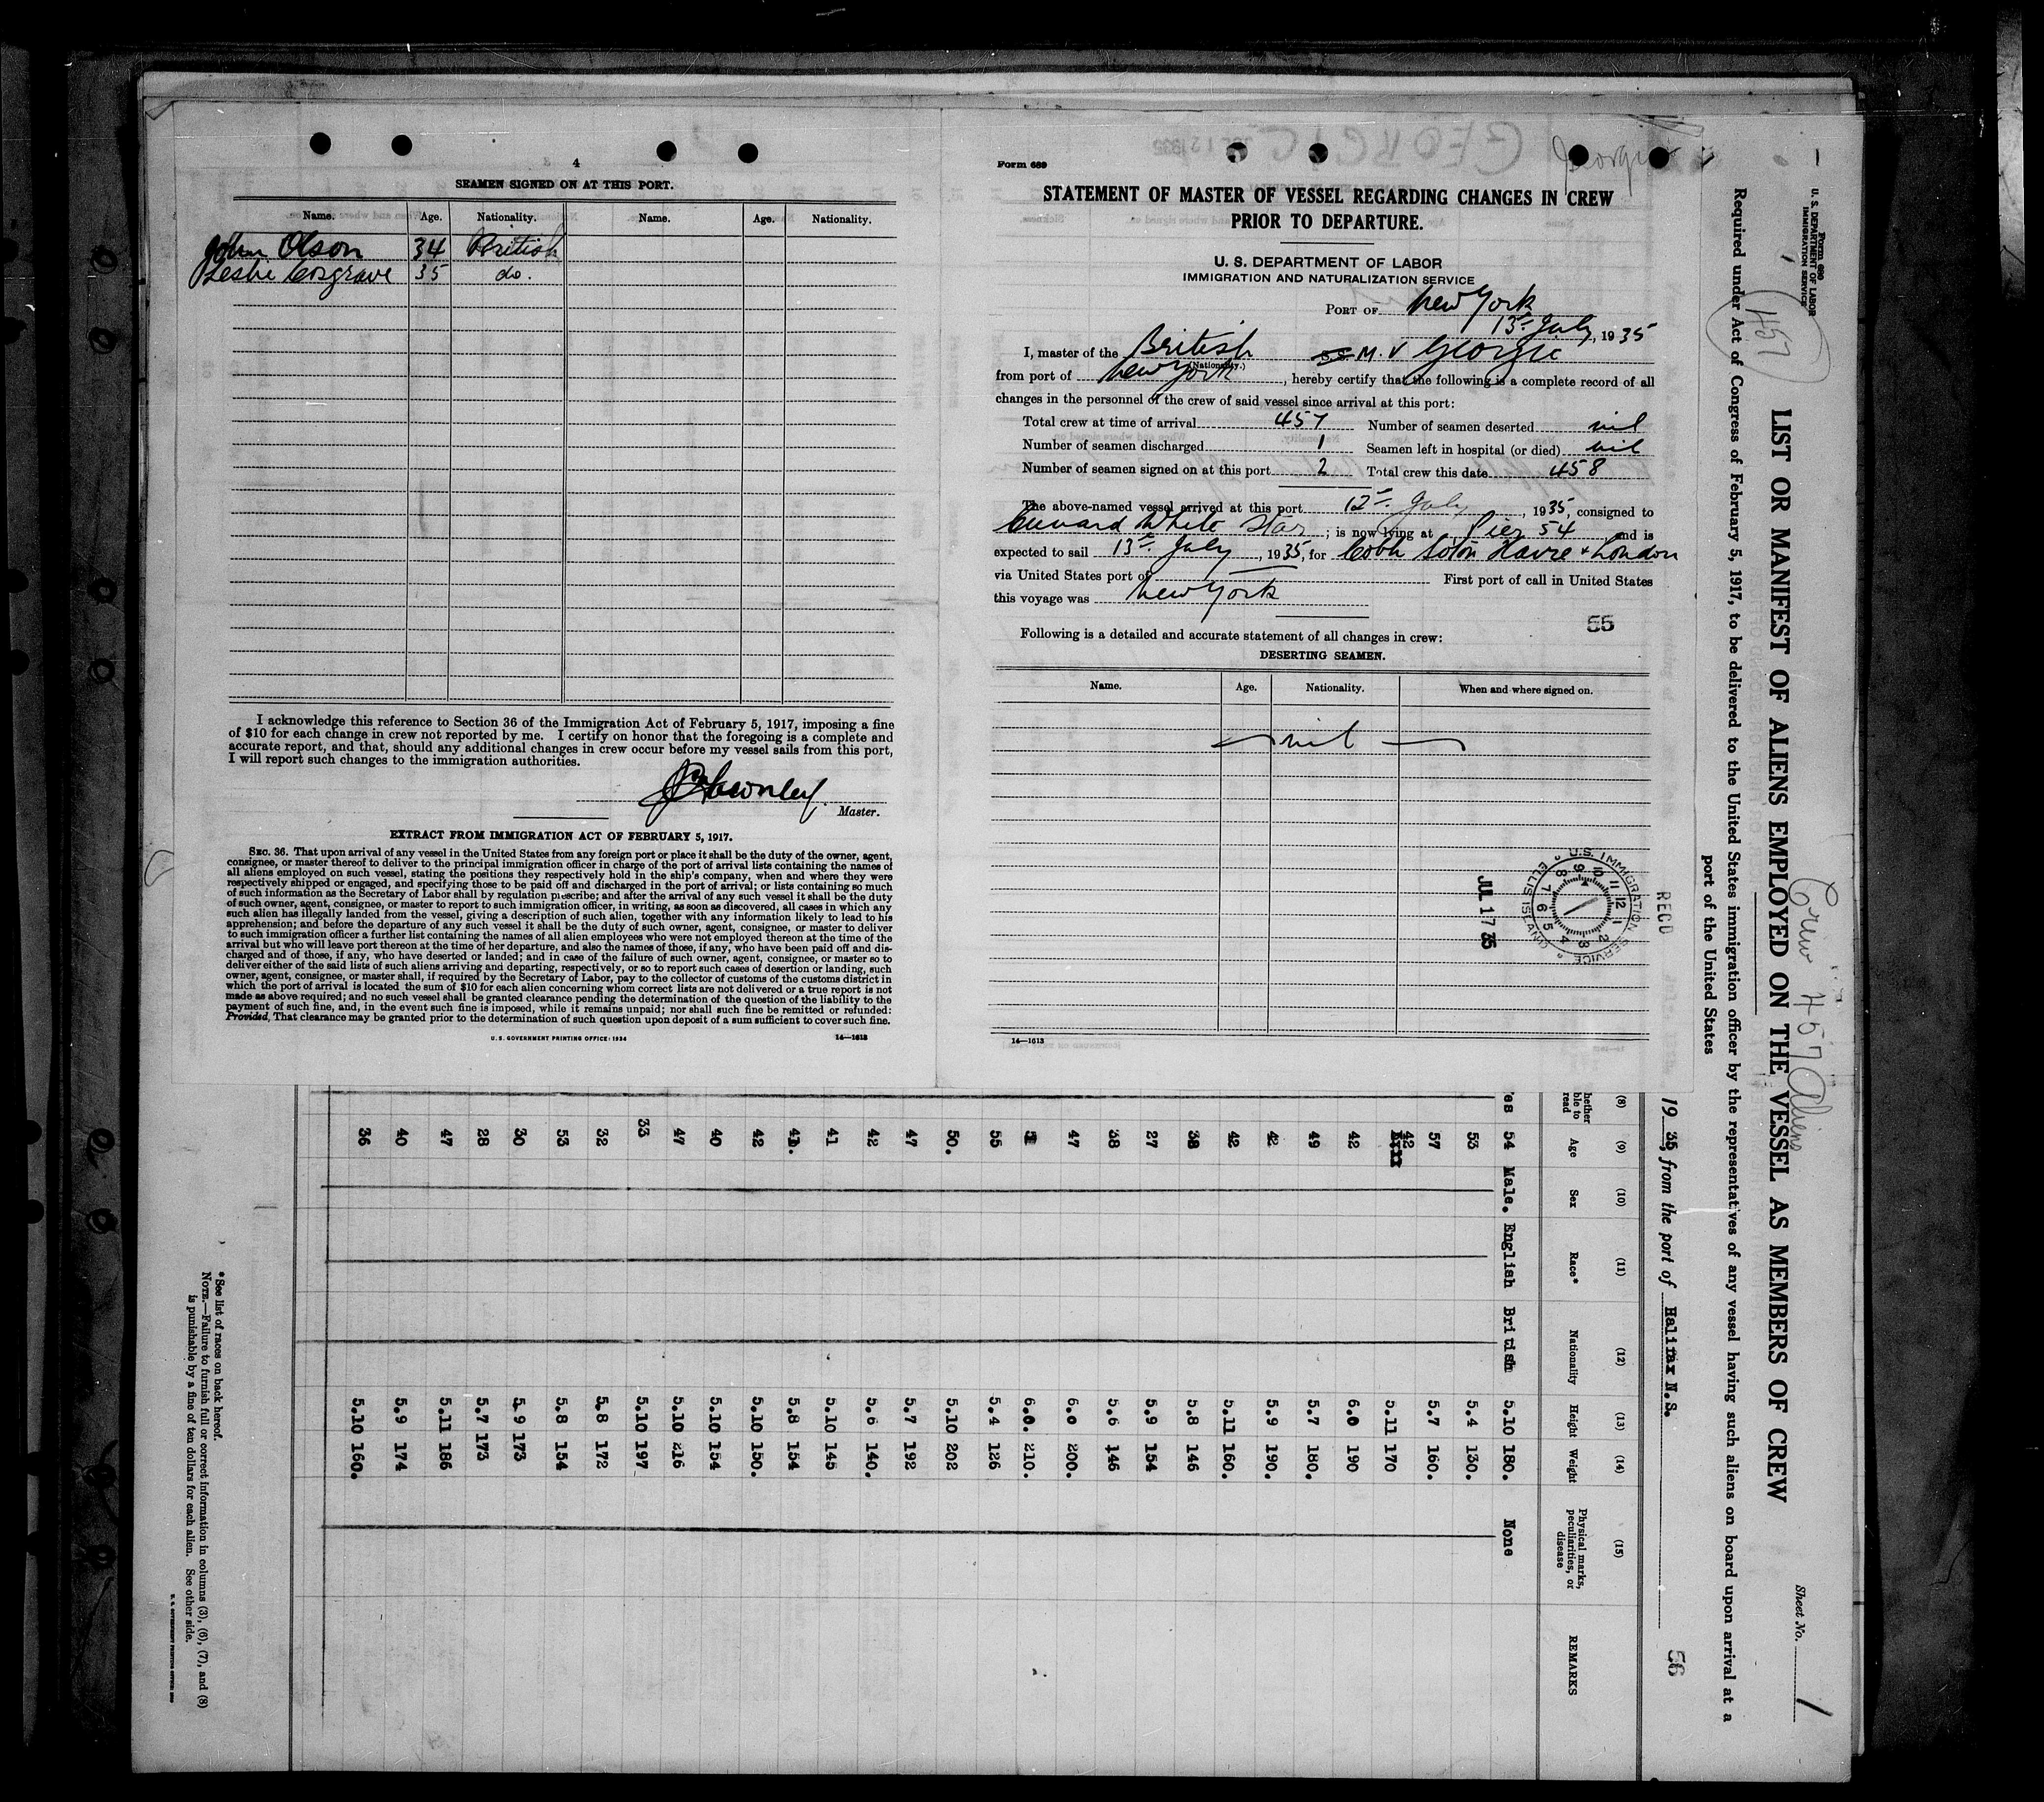 4
SEAMEN SIGNED ON AT THIS PORT.
Name. Age. Nationality. Name. Age. Nationality.
John Olson 34 British
Leslie Cosgrave 35 do.
I acknowledge this reference to Section 36 of the Immigration Act of February 5, 1917, imposing a fine
of $10 for each change in crew not reported by me. I certify on honor that the foregoing is a complete and
accurate report, and that, should any additional changes in crew occur before my vessel sails from this port,
I will report such changes to the immigration authorities.
Master.
EXTRACT FROM IMMIGRATION ACT OF FEBRUARY 5, 1917.
SEC. 36. That upon arrival of any vessel in the United States from any foreign port or place it shall be the duty of the owner, agent,
consignee, or master thereof to deliver to the principal immigration officer in charge of the port of arrival lists containing the names of
all aliens employed on such vessel, stating the positions they respectively hold in the ship's company, when and where they were
respectively shipped or engaged, and specifying those to be paid off and discharged in the port of arrival; or lists containing so much
of such information as the Secretary of Labor shall by regulation prescribe; and after the arrival of any such vessel it shall be the duty
of such owner, agent, consignee, or master to report to such immigration officer, in writing, as soon as discovered, all cases in which any
such alien has illegally landed from the vessel, giving a description of such alien, together with any information likely to lead to his
apprehension; and before the departure of any such vessel it shall be the duty of such owner, agent, consignee, or master to deliver
to such immigration officer a further list containing the names of all alien employees who were not employed thereon at the time of the
arrival but who will leave port thereon at the time of her departure, and also the names of those, if any, who have been paid off and dis-
charged and of those, if any, who have deserted or landed; and in case of the failure of such owner, agent, consignee, or master so to
deliver either of the said lists of such aliens arriving and departing, respectively, or so to report such cases of desertion or landing, such
owner, agent, consignee, or master shall, if required by the Secretary of Labor, pay to the collector of customs of the customs district in
which the port of arrival is located the sum of $10 for each alien concerning whom correct lists are not delivered or a true report is not
made as above required; and no such vessel shall be granted clearance pending the determination of the question of the liability to the
payment of such fine, and, in the event such fine is imposed, while it remains unpaid; nor shall such fine be remitted or refunded:
Provided, That clearance may be granted prior to the determination of such question upon deposit of a sum sufficient to cover such fine.
U. S. GOVERNMENT PRINTING OFFICE: 1934 14—1613
Georgic
Form 689
STATEMENT OF MASTER OF VESSEL REGARDING CHANGES IN CREW
PRIOR TO DEPARTURE.
U. S. DEPARTMENT OF LABOR
IMMIGRATION AND NATURALIZATION SERVICE
PORT OF New York
13th July, 1935
I, master of the British S.S. M.V Georgic
(Nationality.)
from port of New York, hereby certify that the following is a complete record of all
changes in the personnel of the crew of said vessel since arrival at this port:
Total crew at time of arrival 457 Number of seamen deserted nil
Number of seamen discharged 1 Seamen left in hospital (or died) nil
Number of seamen signed on at this port 2 Total crew this date 458
The above-named vessel arrived at this port 12th July, 1935, consigned to
Cunard White Star; is now lying at Pier 54 and is
expected to sail 13th July, 1935, for Cobh Soton Havre + London
via United States port of First port of call in United States
this voyage was New York
55
Following is a detailed and accurate statement of all changes in crew:
DESERTING SEAMEN.
Name. Age. Nationality. When and where signed on.
nil
U.S. IMMIGRATION SERVICE
ELLIS ISLAND
RECD
JUL 17 35
14—1613
1
Form 680
U. S. DEPARTMENT OF LABOR
IMMIGRATION SERVICE
457
Crew 457 Aliens
Sheet No. 1
LIST OR MANIFEST OF ALIENS EMPLOYED ON THE VESSEL AS MEMBERS OF CREW
Required under Act of Congress of February 5, 1917, to be delivered to the United States immigration officer by the representatives of any vessel having such aliens on board upon arrival at a
port of the United States
19 35, from the port of Halifax N.S.
56
(8) (9) (10) (11) (12) (13) (14) (15)
hether ble to read Age Sex Race* Nationality Height Weight Physical marks, peculiarities, or disease REMARKS
es 54 Male. English British 5.10 180. None
53 5.4 130.
57 5.7 160.
42 5.11 170
42 6.0 190
49 5.7 180.
42 5.9 190.
42 5.11 160.
38 5.8 146
27 5.9 154
38 5.6 146
47 6.0 200.
6.0. 210.
55 5.4 126
50. 5.10 202
47 5.7 192
42 5.6 140.
41 5.10 145
41. 5.8 154
42 5.10 150.
40 5.10 154
47 5.10 216
33 5.10 197
32 5.8 172
53 5.8 154
30 5.9 173
28 5.7 173
47 5.11 186
40 5.9 174
36 5.10 160.
*See list of races on back hereof.
NOTE.—Failure to furnish full or correct information in columns (3), (6), (7), and (8)
is punishable by a fine of ten dollars for each alien. See other side.